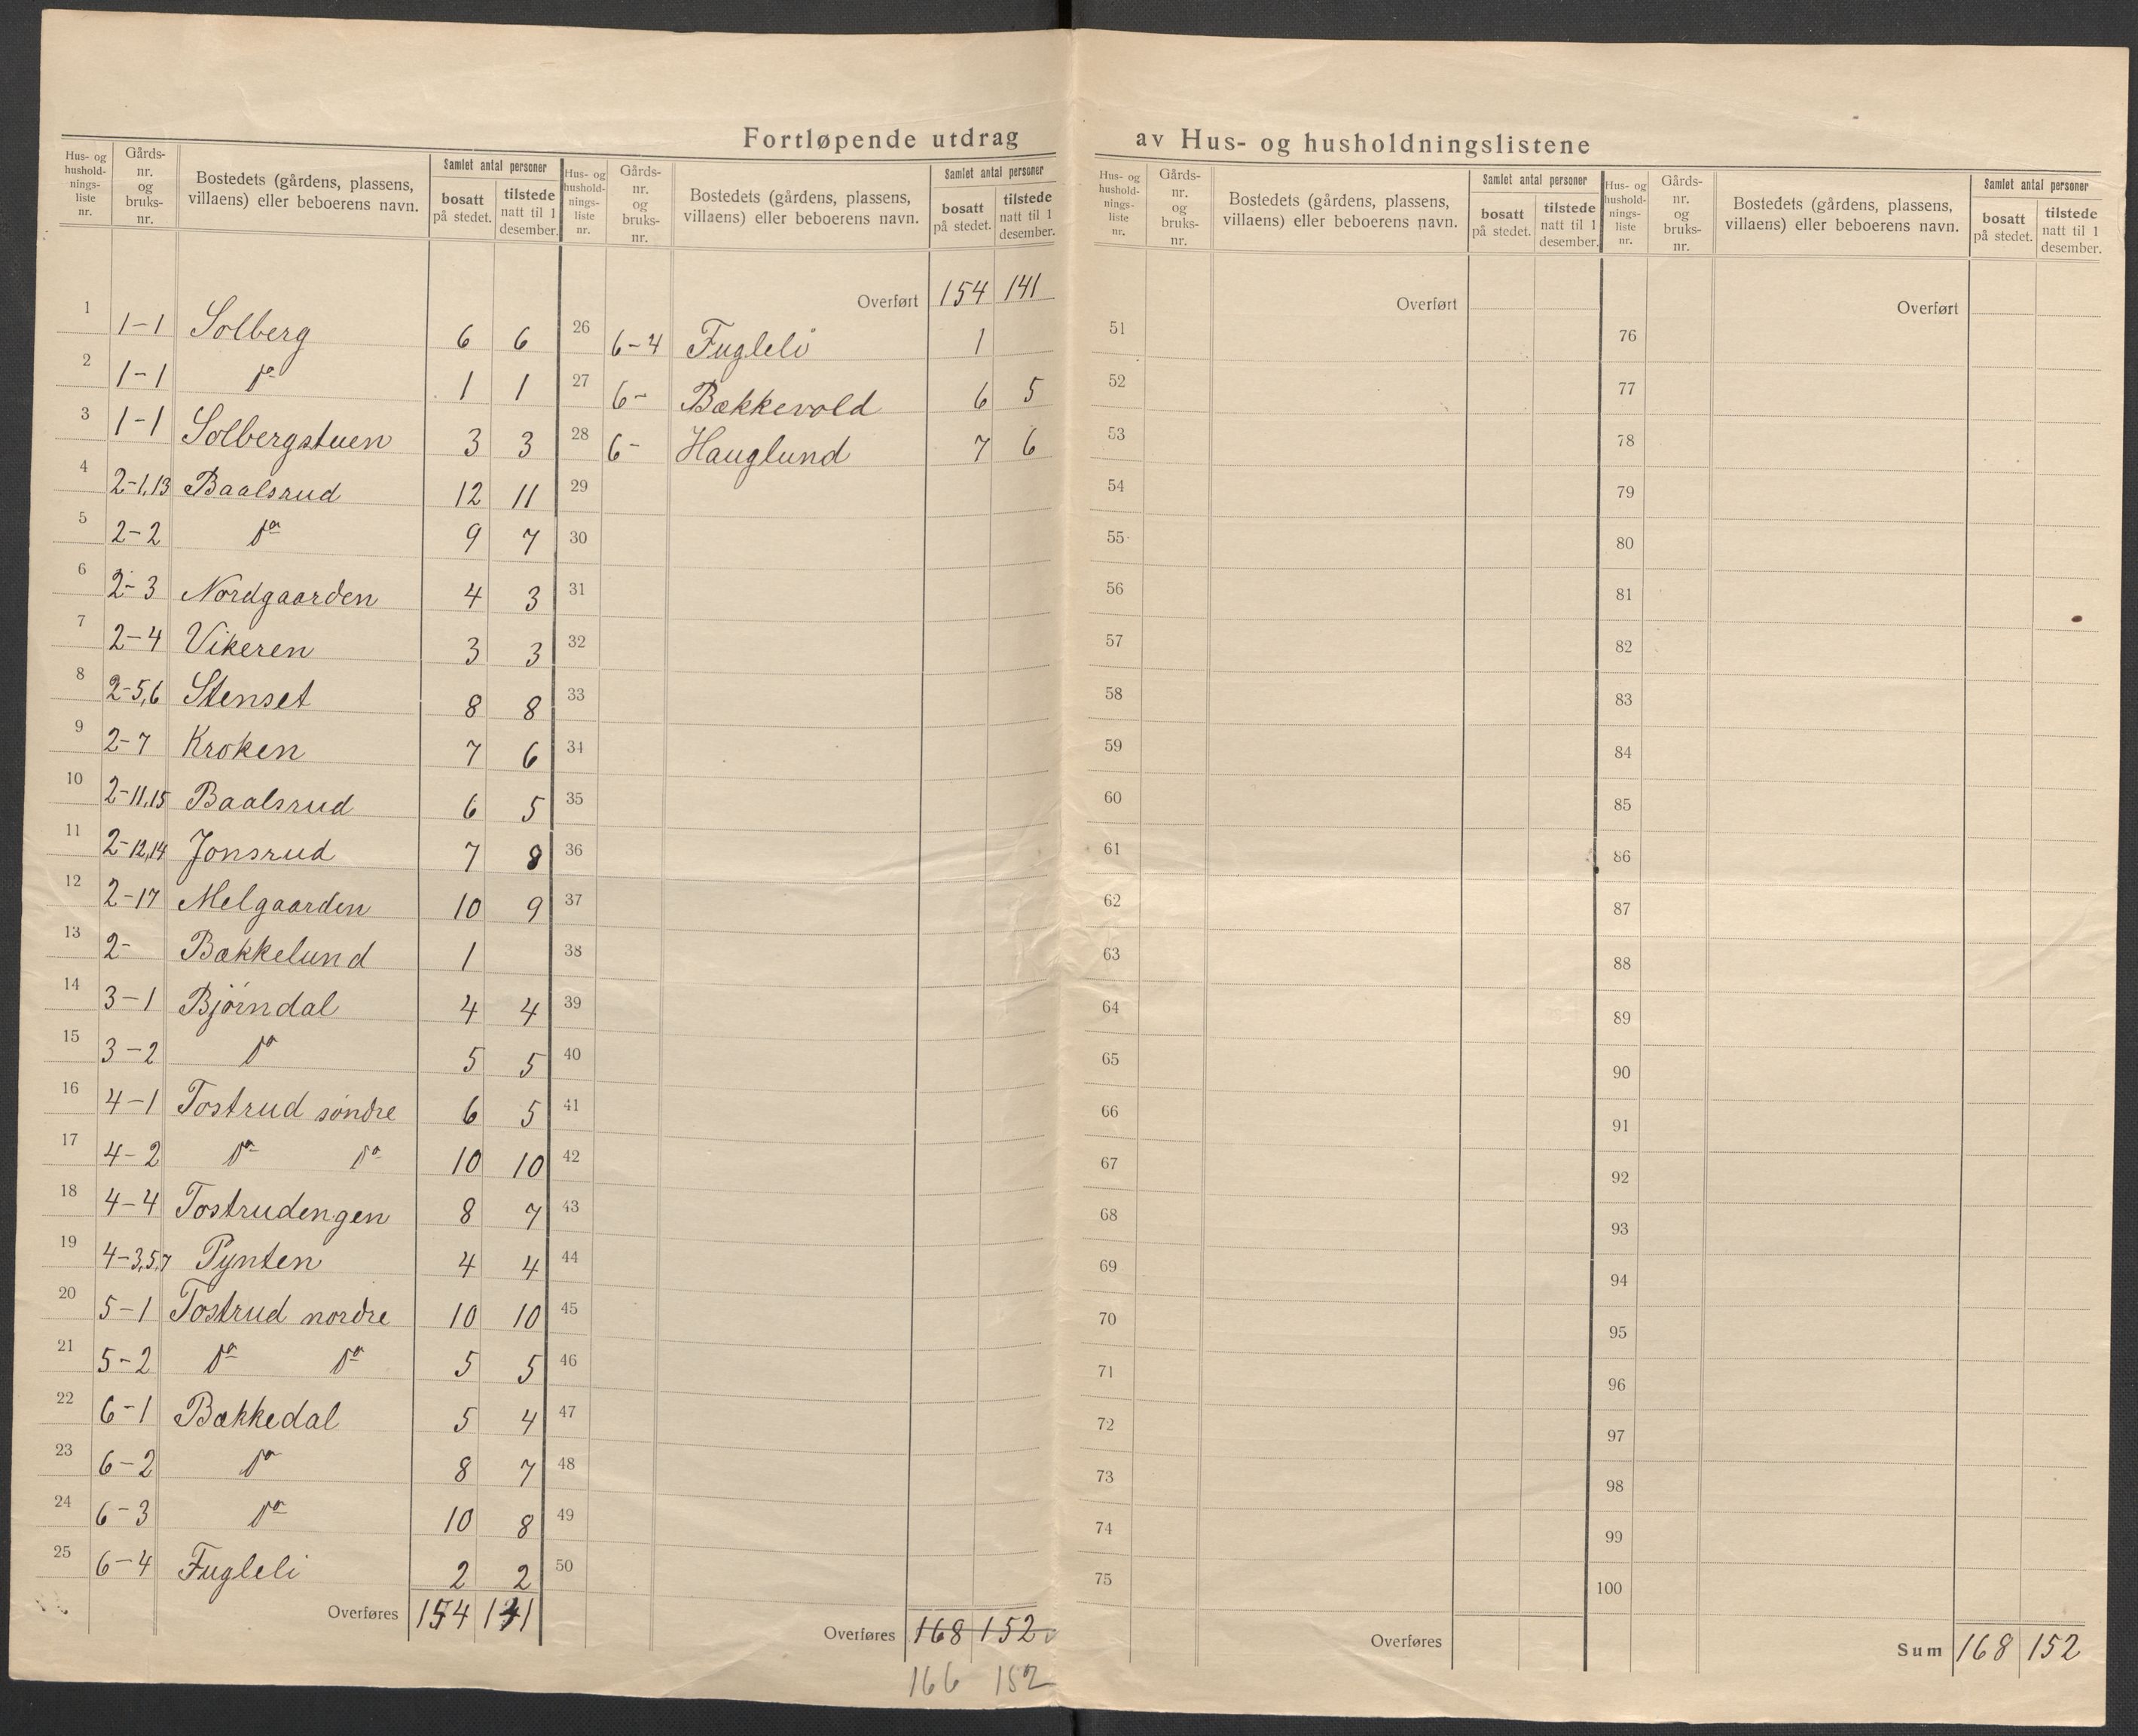 Fortløpende utdrag av Hus- og husholdningslistene
Hus- og hushold-nings-liste nr. | Gårds-nr. og bruks-nr. | Bostedets (gårdens, plassens, villaens) eller beboerens navn. | Samlet antal personer | bosatt på stedet. | tilstede natt til 1 desember.
1 1-1 Solberg 6 6
2 1-1 do 1 1
3 1-1 Solbergstuen 3 3
4 2-1,13 Baalsrud 12 11
5 2-2 do 9 7
6 2-3 Nordgaarden 4 3
7 2-4 Vikeren 3 3
8 2-5,6 Stenset 8 8
9 2-7 Kroken 7 6
10 2-11,15 Baalsrud 6 5
11 2-12,14 Jonsrud 7 8
12 2-17 Melgaarden 10 9
13 2- Bækkelund 1
14 3-1 Bjørndal 4 4
15 3-2 do 5 5
16 4-1 Tostrud søndre 6 5
17 4-2 do do 10 10
18 4-4 Tostrudengen 8 7
19 4-3,5,7 Pynten 4 4
20 5-1 Tostrud nordre 10 10
21 5-2 do do 5 5
22 6-1 Bækkedal 5 4
23 6-2 do 8 7
24 6-3 do 10 8
25 6-4 Fugleli 2 2
Overføres 154 141
Hus- og hushold-nings-liste nr. | Gårds-nr. og bruks-nr. | Bostedets (gårdens, plassens, villaens) eller beboerens navn. | Samlet antal personer | bosatt på stedet. | tilstede natt til 1 desember.
Overført 154 141
26 6-4 Fugleli 1
27 6- Bækkevold 6 5
28 6- Hauglund 7 6
29
30
31
32
33
34
35
36
37
38
39
40
41
42
43
44
45
46
47
48
49
50
Overføres 168 152
166 152
Hus- og hushold-nings-liste nr. | Gårds-nr. og bruks-nr. | Bostedets (gårdens, plassens, villaens) eller beboerens navn. | Samlet antal personer | bosatt på stedet. | tilstede natt til 1 desember.
Overført
51
52
53
54
55
56
57
58
59
60
61
62
63
64
65
66
67
68
69
70
71
72
73
74
75
Overføres
Hus- og hushold-nings-liste nr. | Gårds-nr. og bruks-nr. | Bostedets (gårdens, plassens, villaens) eller beboerens navn. | Samlet antal personer | bosatt på stedet. | tilstede natt til 1 desember.
Overført
76
77
78
79
80
81
82
83
84
85
86
87
88
89
90
91
92
93
94
95
96
97
98
99
100
Sum 168 152